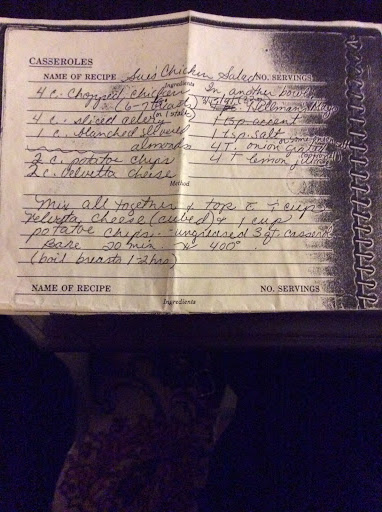 CASSEROLES
NAME OF RECIPE Sue's Chicken Salad NO. SERVINGS
Ingredients
4 c. chopped chicken In another bowl
(6-7 breasts) Hellman Mayo
4 c. sliced celery (or 1 stalk) 1 tsp. accent
1 c. blanched slivered 1 tsp. salt
almonds 4 T. onion
2 c. potato chips 4 T lemon juice
2 c. Velvetta cheese
Method
Mix all together & top c̄ 1 cup
Velvetta cheese (cubed) & 1 cup
potatoe chips. - ungreased 3 qt. casserole
Bake 20 min. 400°
(boil breasts 1-2 hrs)
NAME OF RECIPE NO. SERVINGS
Ingredients